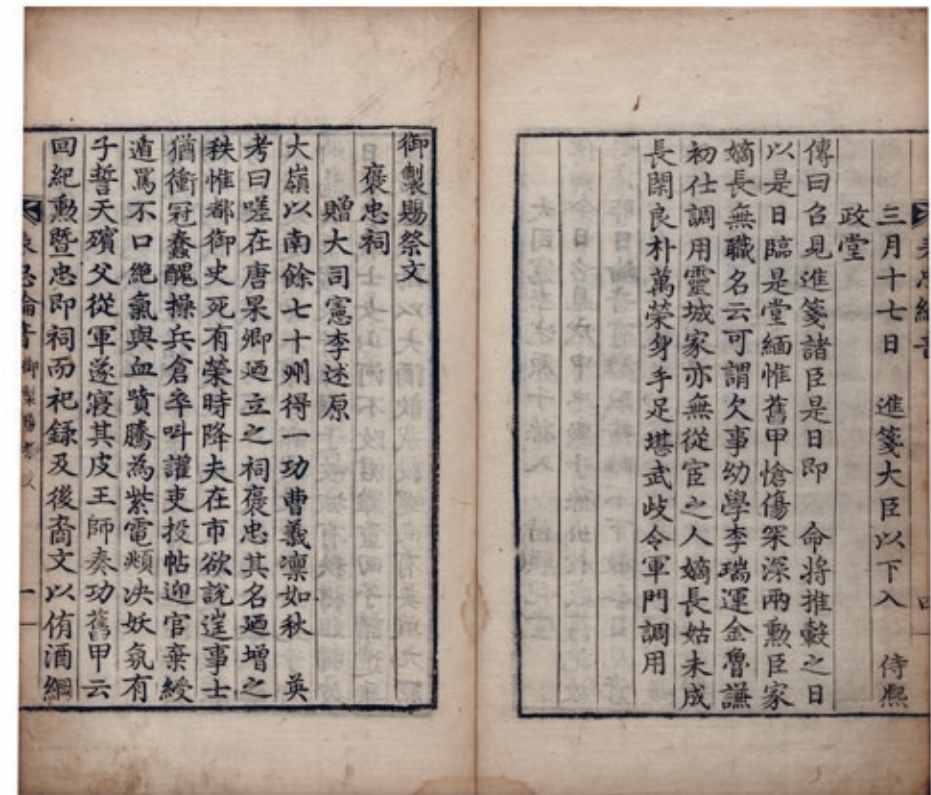 三月十七日 進箋大臣以下入 侍熙
政堂
傳曰召見進箋諸臣是日即 命將推轂之日
以是日臨是堂緬惟舊甲愴傷冞深兩勳臣家
嫡長無職名云可謂欠事幼學李瑞運金魯謙
初仕調用靈城家亦無從宦之人嫡長姑未成
長閑良朴萬榮身手足堪武歧令軍門調用
四
御製賜祭文
褒忠祠
贈大司憲李述原
大嶺以南餘七十州得一功曹義凜如秋 英
考曰嗟在唐杲卿廼立之祠褒忠其名廼增之
秩惟都御史死有榮時降夫在市欲說逆事士
猶衝冠蠢醜操兵倉卒叫讙吏投帖迎官棄綬
遁罵不口絶氣與血噴騰為紫電頫决妖氛有
子誓天殯父從軍遂寢其皮王師奏功舊甲云
回紀勳暨忠即祠而祀錄及後裔文以侑酒綱
御製賜祭文
一